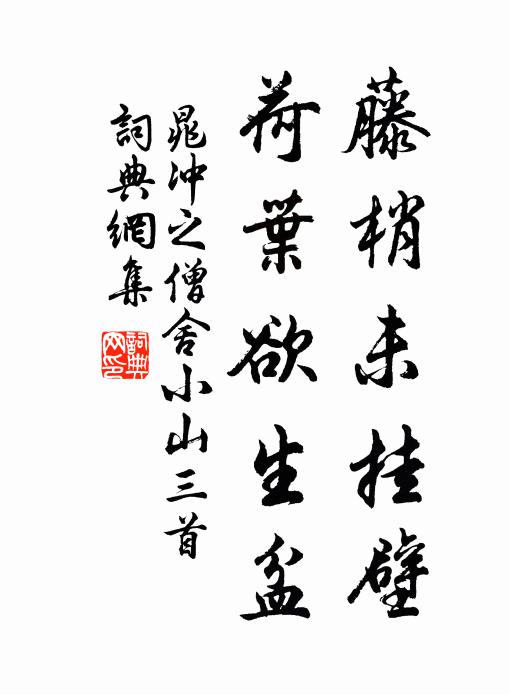 藤梢未挂壁
荷葉欲生盆
晁冲之僧舍小山三首
詞典網集
詞典
网印